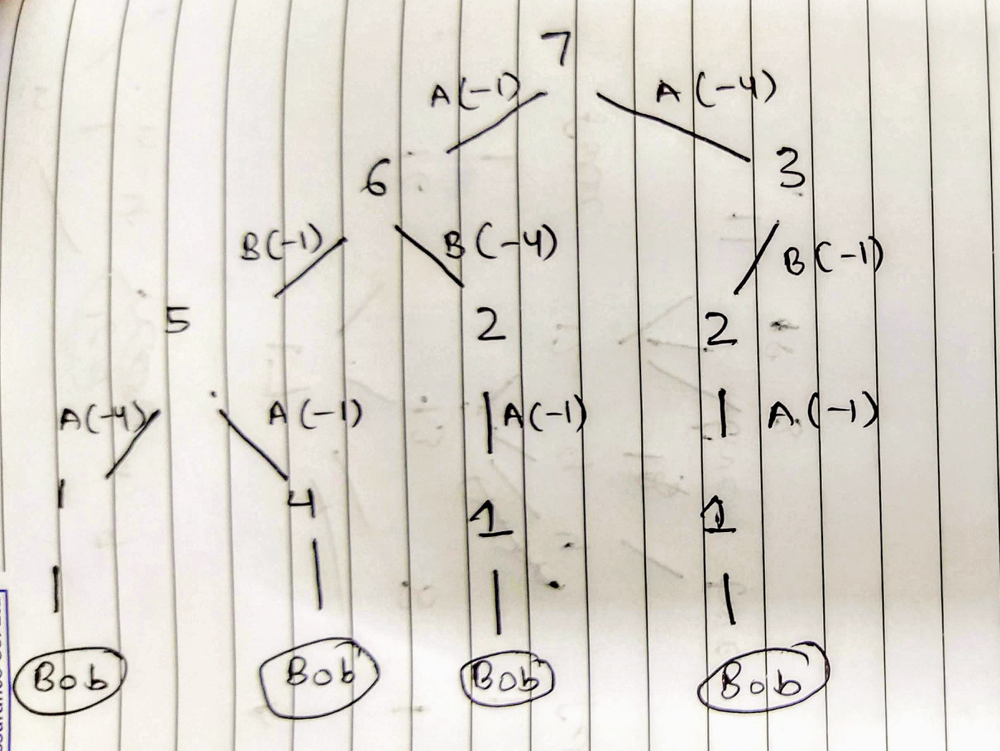 7
A(-1) A(-4)
6 3
B(-1) B(-4) B(-1)
5 2 2
A(-4) A(-1) A(-1) A.(-1)
1 4 1 1
Bob Bob Bob Bob